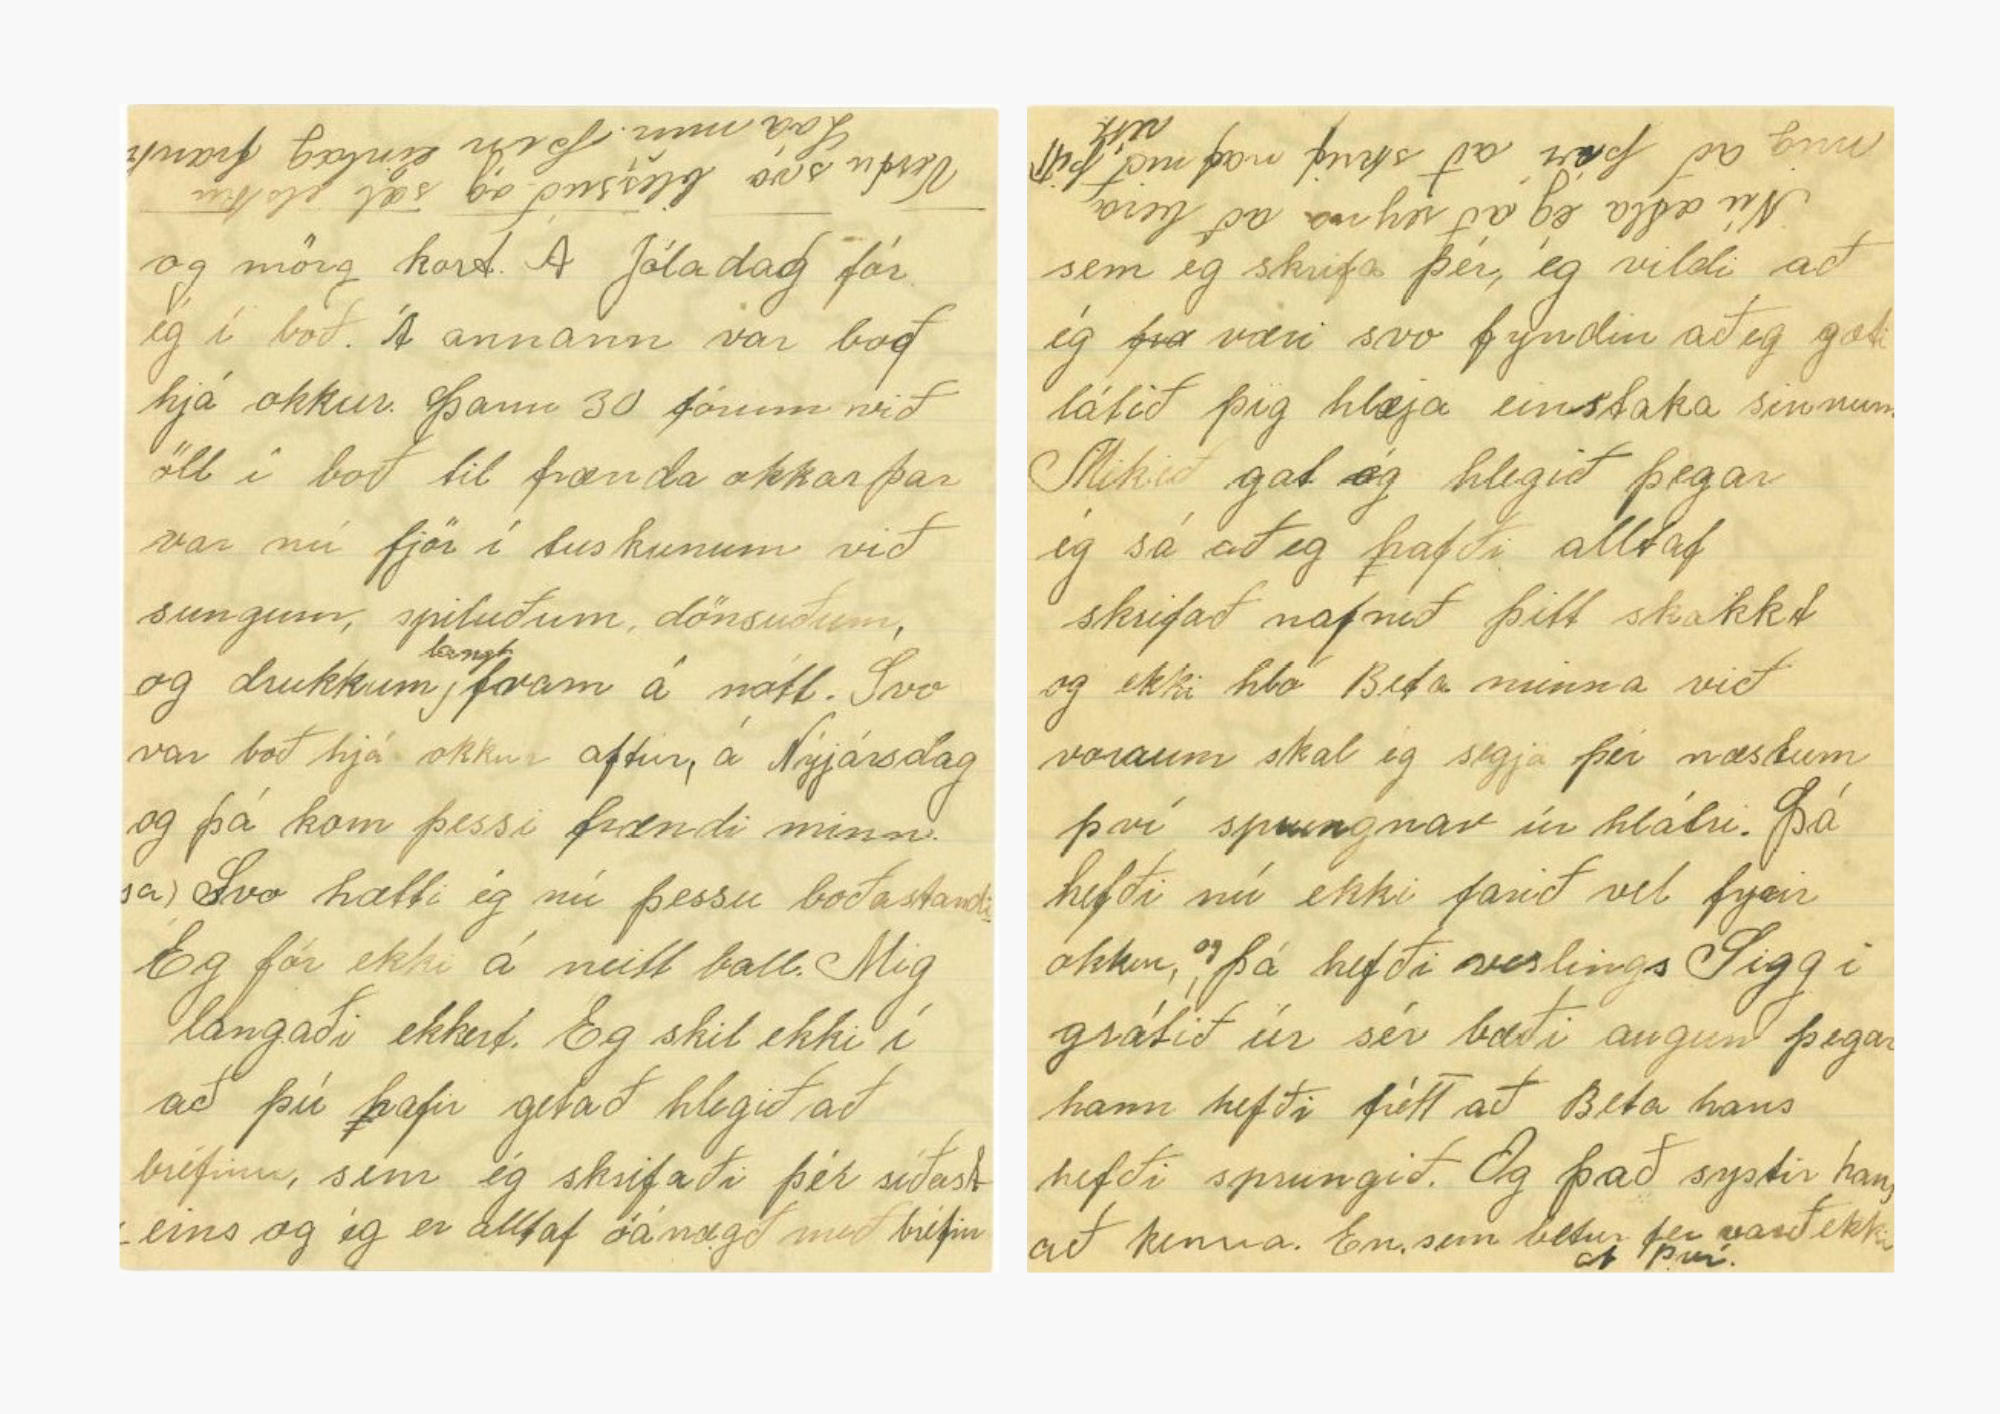 Verðu svo blessuð og sæl elskan
Lóa mín. Þín einlæg frænka
og mörg kort. Á Jóladag fór
ég í boð. Á annann var boð
hjá okkur. Þann 30 fórum við
öll í boð til frænda okkar þar
var nú fjör í tuskunum við
sungum, spiluðum, dönsuðum,
og drukkum, langt fram á nótt. Svo
var boð hjá okkur aftur, á Nýjársdag
og þá kom þessi frændi minn.
sa) Svo hætti ég nú þessu boðastandi.
Eg fór ekki á neitt ball. Mig
langaði ekkert. Eg skil ekki í
að þú hafir getað hlegið að
bréfinu, sem ég skrifaði þér síðast
eins og ég er alltaf óánægð með bréfin
Nú ætla ég að reyna að
mig að því að skrif nafnið þitt
rétt.
sem ég skrifa þér, ég vildi að
ég væri svo fyndin að eg gæti
látið þig hlæja einstaka sinnum.
Mikið gat ég hlegið þegar
ég sá að eg hafði alltaf
skrifað nafnið þitt skakkt
og ekki hló Beta minna við
voraum skal ég segja þér næstum
því sprungnar úr hlátri. Þá
hefði nú ekki farið vel fyrir
okkur, og þá hefði veslings Siggi
grátið úr sér bæði augun þegar
hann hefði frétt að Beta hans
hefði sprungið. Og það systir hans
að kenna. En sem betur fer varð ekki
af því.